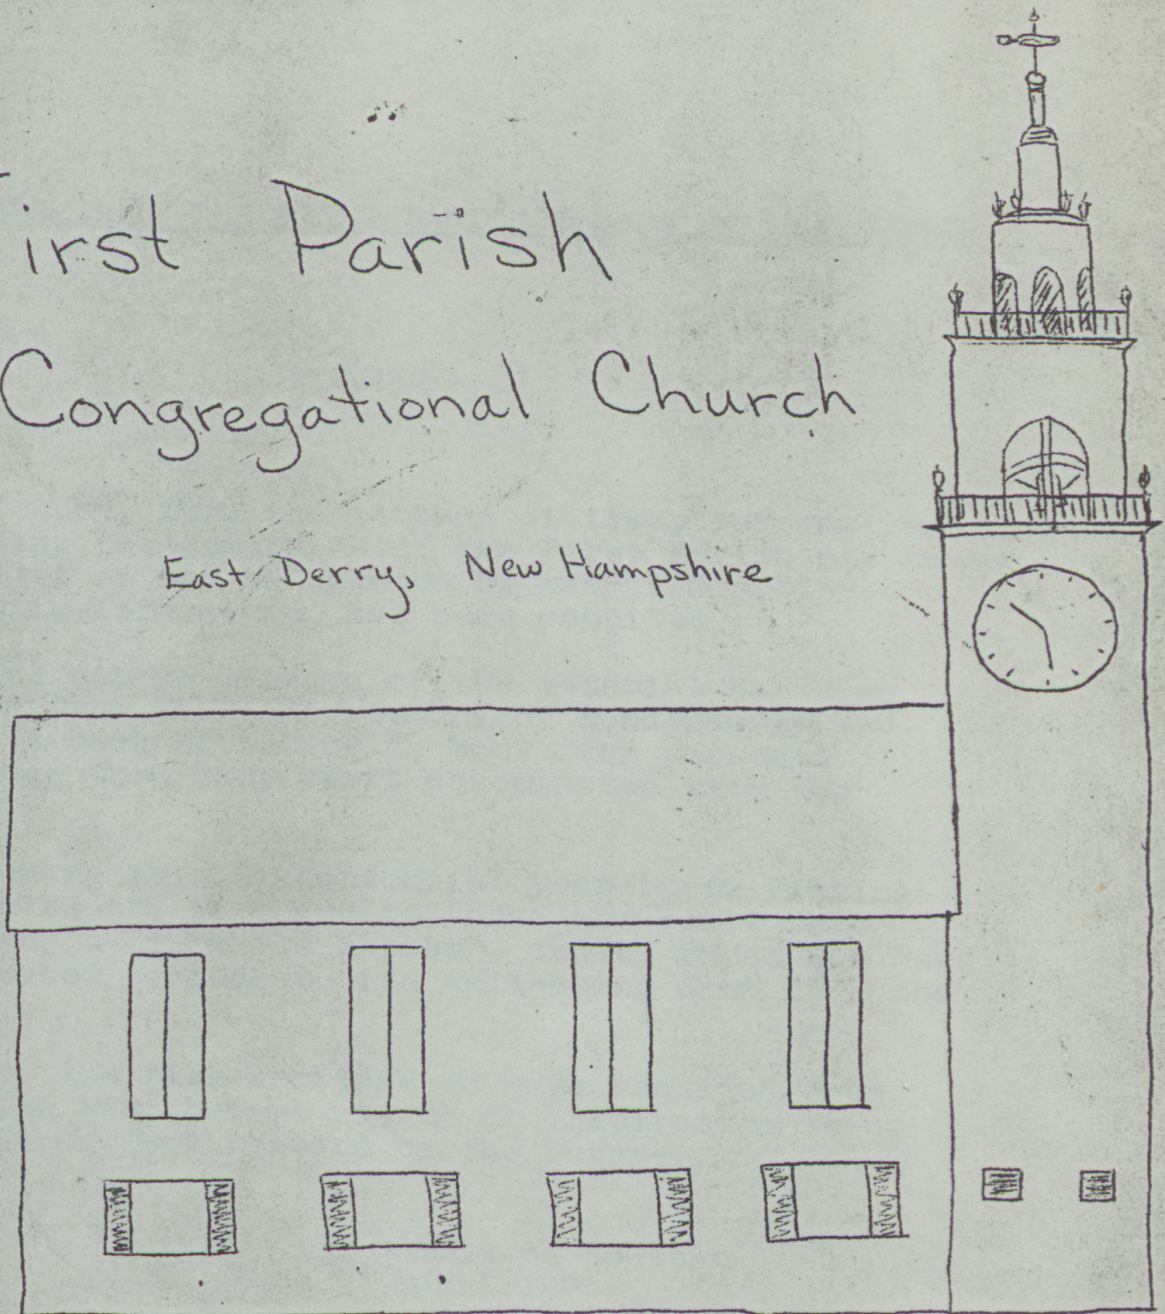 First Parish
Congregational Church
East Derry, New Hampshire